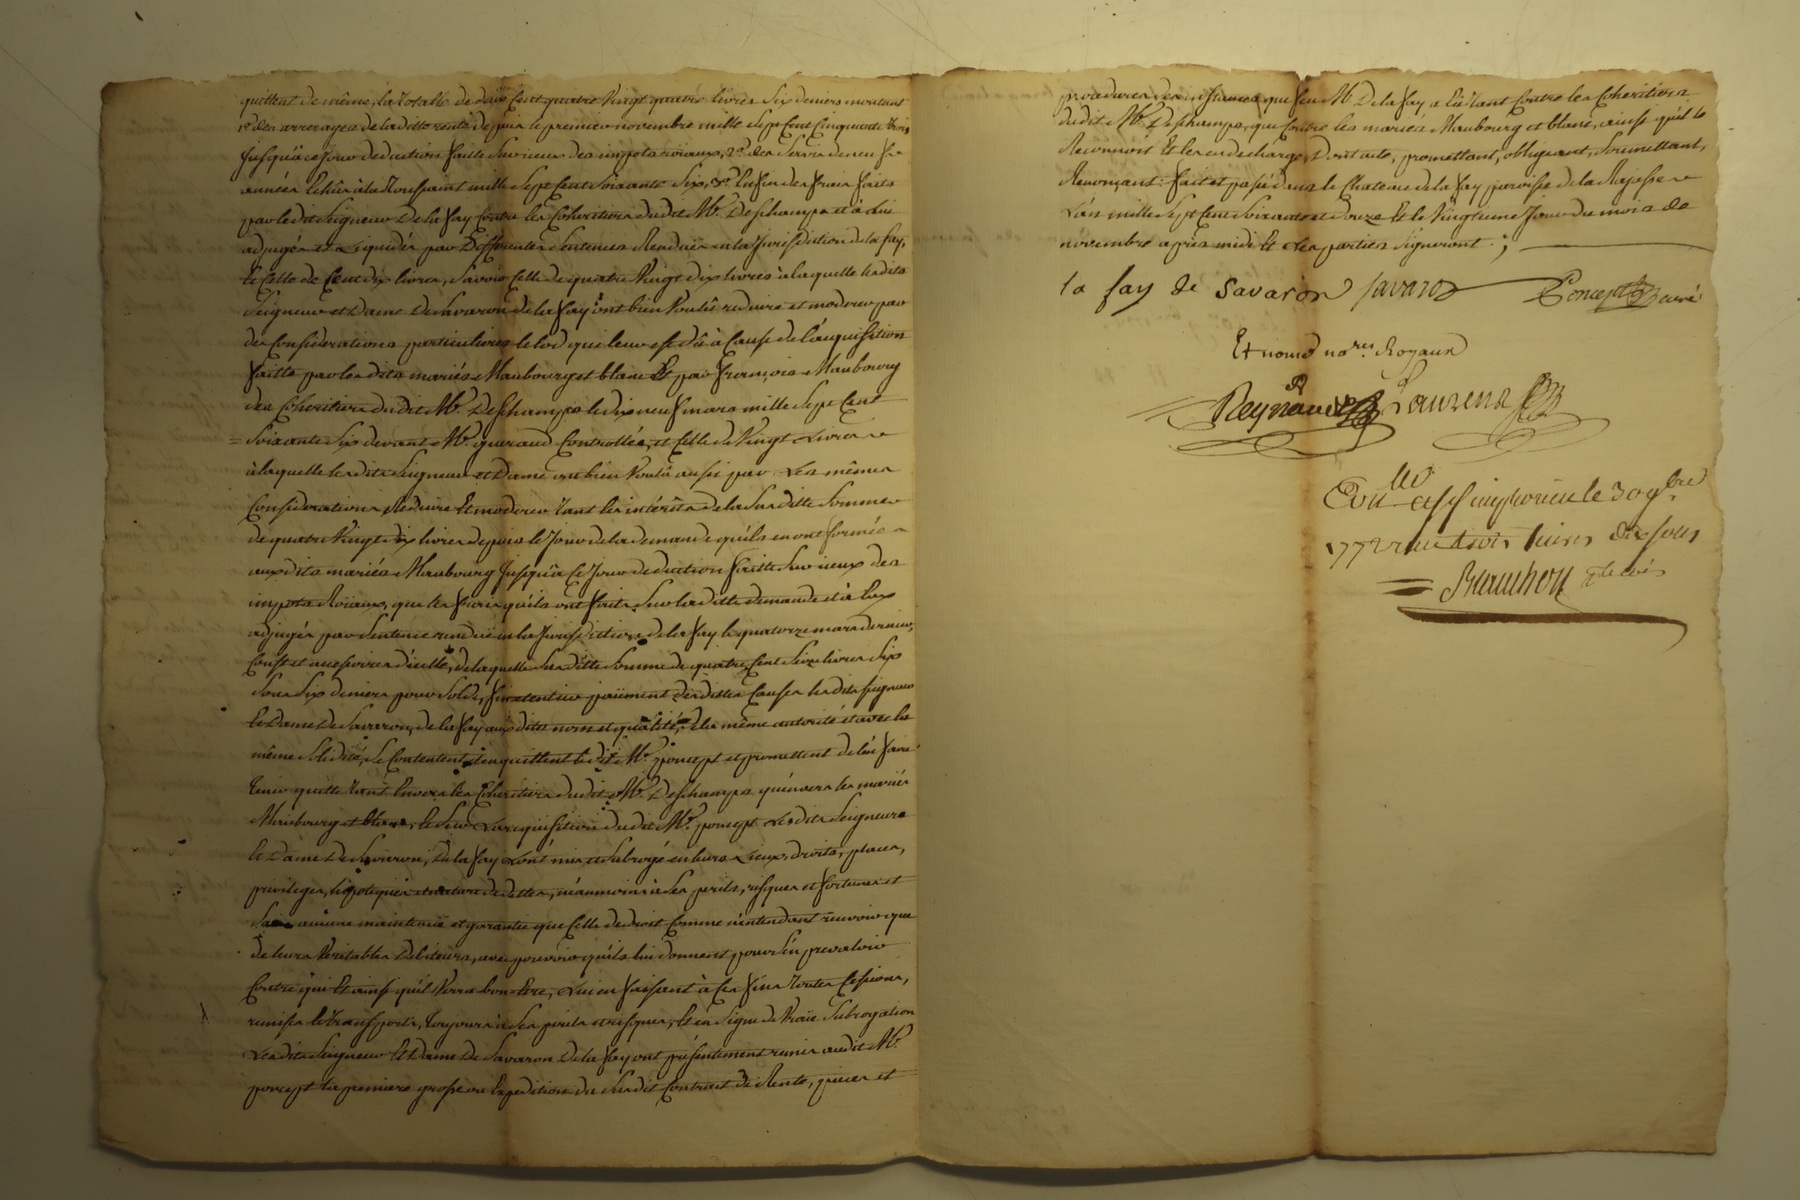 quittent de même, la totalle de deux cent quatre vingt quatre livres six deniers montant
1° des arrerages de laditte rente depuis le premier novembre mille sept cent cinquante trois
jusqu'à ce jour deduction faitte sur iceux des impots roiaux, 2° des servis de neuf
année échûs à la Toussaint mille sept cent soixante six, 3° enfin des frais faits
par ledit seigneur De la fay contre les Coheritiers dudit Me. Deschamps et à lui
adjugés et Liquidés par Differentes sentences Renduës en la Jurisdiction de la fay,
et Celle de Cent dix livres, savoir Celle de quatre vingt dix livres à laquelle lesdits
Seigneur et Dame De Savaron de la fay ont bien voulû reduire et moderer par
des Considerations particulieres le lod qui leur est dû à Cause de l'acquisition
faitte par lesdits mariés Maubourg et blanc Et par françois Maubourg
des Coheritiers dudit Me. Deschamps le dix neuf mars mille sept Cent
soixante six devant Me. gueraud Controllée, et Celle de vingt Livres
à laquelle lesdits Seigneur et Dame ont bien voulû aussi par Les mêmes
Considerations, Reduire Et moderer tant les intérêts de la susditte somme
de quatre vingt dix livres depuis le Jour de la demande qu'ils en ont formée
auxdits mariés Maubourg jusqu'à Ce Jour deduction faitte sur iceux des
impots Roiaux, que les frais qu'ils ont faits sur laditte demande et à Eux
adjugés par sentence renduë en la Jurisdiction de la fay le quatorze mars dernier,
Coust et accessoires d'icelle, de laquelle susditte somme de quatre Cent seize livres six
sous six deniers pour solde, fin et entier paiiment desdittes Causes lesdits seigneur
et Dame De Savaron, de la fay auxdits noms et qualité, De la même autorité et avec la
même solidité, se Contentent et en quittent ledit Me. poncept et promettent de l'en faire
tenir quitte tant Envers les Coheritiers dudit Me. Deschamps qu'envers les mariés
Maubourg et blanc, et sur La requisition dudit Me. poncept Lesdits Seigneurs
et Dame De Savaron, De la fay L'ont mis et subrogé en leurs Lieux, droits, places,
privileges, hypoteques et nature de dettes, néanmoins à ses perils, risques et fortunes et
sans aucune maintenüe et garantie que Celle de droit Comme n'entendant recevoir que
de leurs veritables Debiteurs, avec pouvoir qu'ils lui donnent pour s'en prevaloir
Contre qui Et ainsi qu'il verra bon être, Lui en faisant à Ces fins toutes Cessions,
remises et transports, toujours à ses perils et risques, Et en signe de vraie subrogation
Lesdits Seigneur Et Dame de Savaron De la fay ont présentement remis audit Me.
poncept la premiere grosse ou Expedition du susdit Contrat de Rente, pieces et
procedures des instances que feu M. De la fay a Eû tant Contre les Coheritiers
dudit Me. Deschamps, que Contre les mariés Maubourg et blanc, ainsi qu'il le
Reconnoit Et les en decharge, Dont acte, promettant, obligeant, soumettant,
Renonçant: fait et passé dans le Chateau de la fay paroisse de la Rajasse
L'an mille sept Cent soixante et douze Et le vingtieme Jour du mois de
novembre après midi Et Les parties signeront ;
la fay de Savaron Savaron Poncept curé
Et nous nores Royaux
Reynaud Laurens
Conllé a St Simphorien le 30 9bre
1772 reçu trois livres dix sous